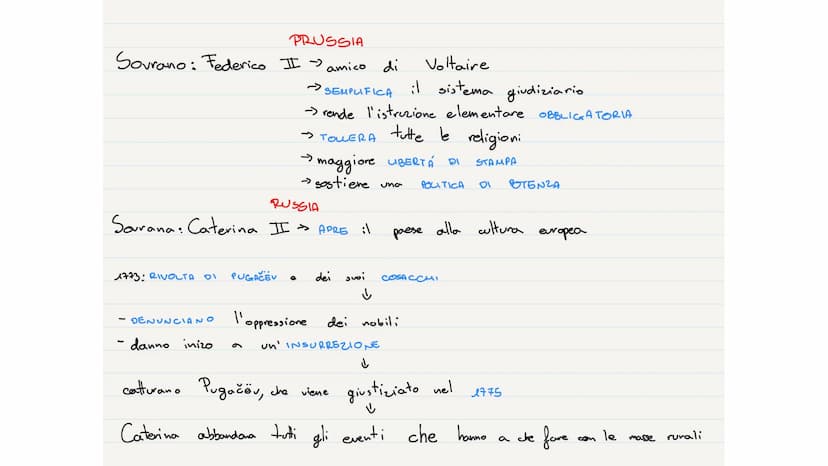 PRUSSIA
Sovrano: Federico II → amico di Voltaire
→ SEMPLIFICA il sistema giudiziario
→ rende l'istruzione elementare OBBLIGATORIA
→ TOLLERA tutte le religioni
→ maggiore LIBERTÁ DI STAMPA
→ sostiene una POLITICA DI POTENZA
RUSSIA
Sovrana: Caterina II → APRE il paese alla cultura europea
1773: RIVOLTA DI PUGAČËV e dei suoi COSACCHI
↓
- DENUNCIANO l'oppressione dei nobili
- danno inizo a un'INSURREZIONE
↓
catturano Pugačëv, che viene giustiziato nel 1775
↓
Caterina abbandona tutti gli eventi che hanno a che fare con le masse rurali